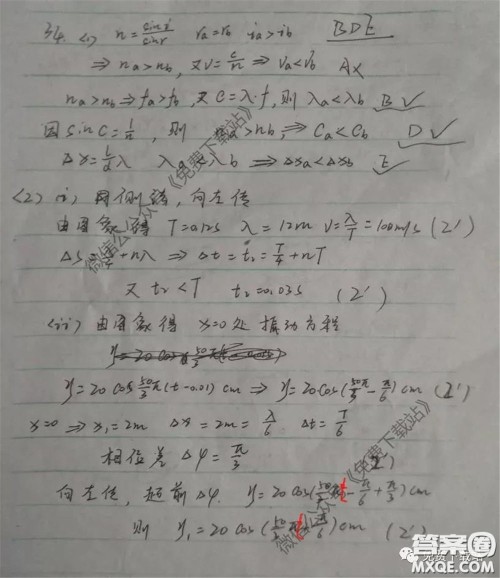 34. (1) n = sin i / sin r  ra = rb  ia > ib  BDE
⇒ na > nb, 又 v = c/n ⇒ va < vb  A×
na > nb ⇒ fa > fb, 又 c = λ·f, 则 λa < λb  B✓
因 sin C = 1/n, 则 na > nb, ⇒ Ca < Cb  D✓
Δx = L/d λ  λa < λb ⇒ Δxa < Δxb  E✓
(2) i) 向左传
由图象得 T = 0.12s  λ = 12m  v = λ/T = 100m/s (2')
+ nλ ⇒ Δt = t2 = T/4 + nT
又 t2 < T  t2 = 0.03s (2')
(ii) 由图象得 x=0处 振动方程
y = 20 cos 50/3 π(t - 0.01) cm ⇒ y = 20 cos( - π/6) cm (2')
x=0 ⇒ x1 = 2m  Δx = 2m = λ/6  Δt = T/6
相位差 Δφ = π/3 2')
向左传, 超前 Δφ. y = 20 cos( t - π/6 + π/3) cm
则 y1 = 20 cos( π/6) cm (2')
《免费下载站》
微信公众众
《免费下载站》
微信公众
免费下载站
答案圈
MXQE.COM